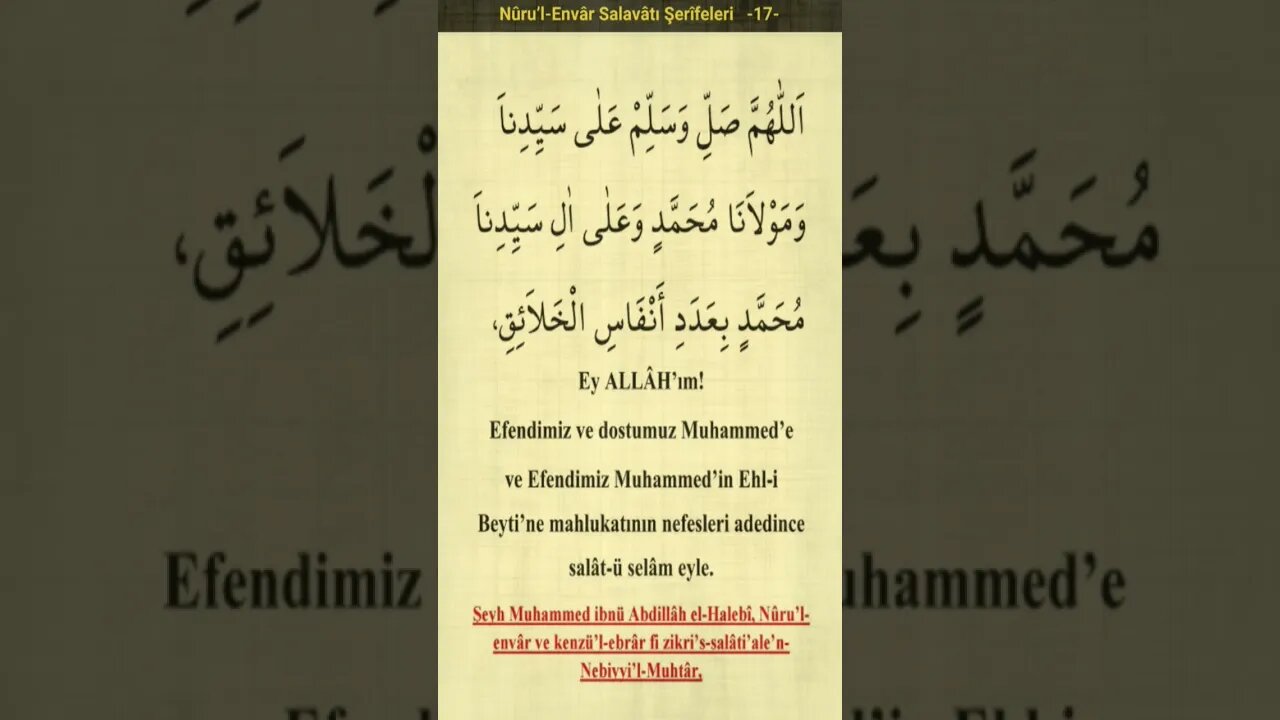 Nûru’l-Envâr Salavâtı Şerîfeleri -17-
اَللّٰهُمَّ صَلِّ وَسَلِّمْ عَلٰى سَيِّدِناَ
وَمَوْلاَنَا مُحَمَّدٍ وَعَلٰى اٰلِ سَيِّدِناَ
مُحَمَّدٍ بِعَدَدِ أَنْفَاسِ الْخَلاَئِقِ،
Ey ALLÂH’ım!
Efendimiz ve dostumuz Muhammed’e
ve Efendimiz Muhammed’in Ehl-i
Beyti’ne mahlukatının nefesleri adedince
salât-ü selâm eyle.
Şeyh Muhammed ibnü Abdillâh el-Halebî, Nûru’l-
envâr ve kenzü’l-ebrâr fî zikri’s-salâti’ale’n-
Nebiyyi’l-Muhtâr,